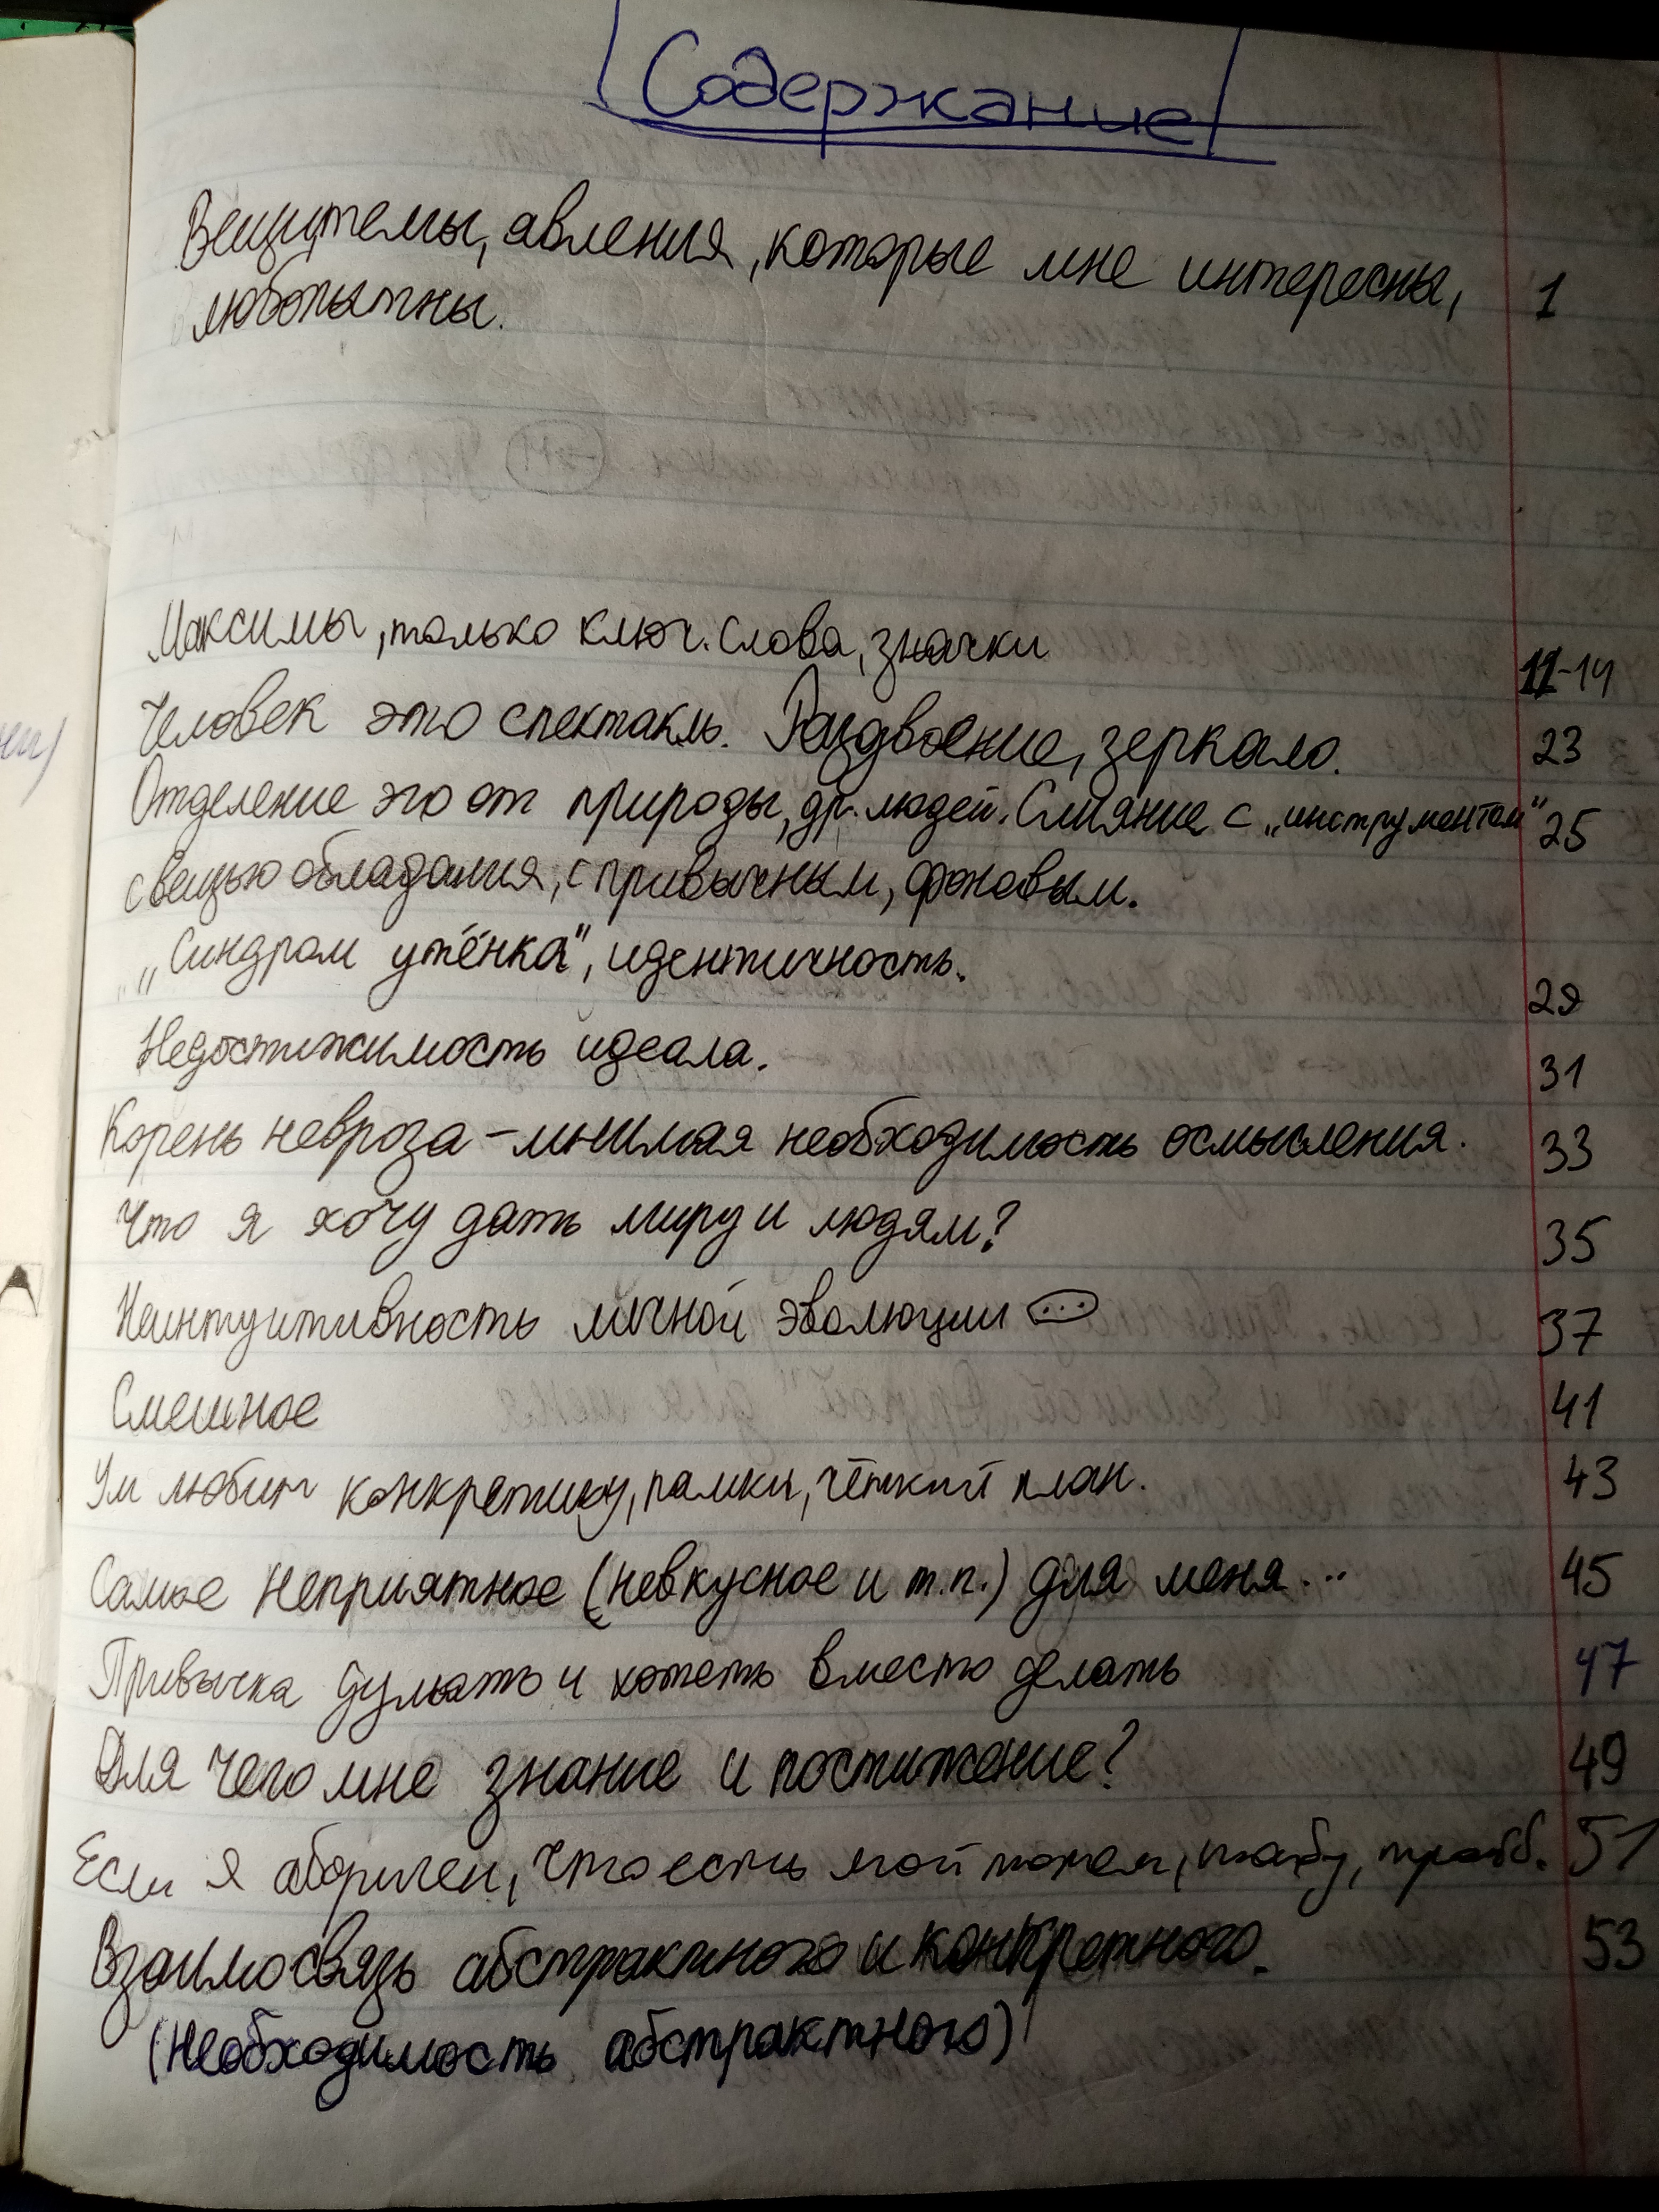 Содержание
Вещи, темы, явления, которые мне интересны, 1
любопытны.
Максимы, только ключ. слова, значки 11-14
Человек это спектакль. Раздвоение, зеркало. 23
Отделение эго от природы, др. людей. Слияние с „инструментом" 25
с вещью обладания, с привычным, фоновым.
„Синдром утёнка", идентичность. 29
Недостижимость идеала. 31
Корень невроза – мнимая необходимость осмысления. 33
Что я хочу дать миру и людям? 35
Неинтуитивность личной эволюции (...) 37
Смешное 41
Ум любит конкретику, рамки, чёткий план. 43
Самое неприятное (невкусное и т.п.) для меня... 45
Привычка думать и хотеть вместо делать 47
Для чего мне знание и постижение? 49
Если я абориген, что есть мой тотем, табу, 51
Взаимосвязь абстрактного и конкретного. 53
(необходимость абстрактного)